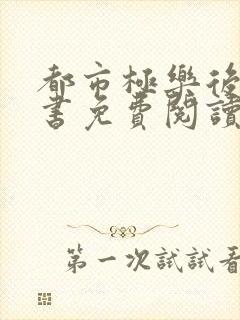 都市極樂後
書免費閱讀
第一次試試看